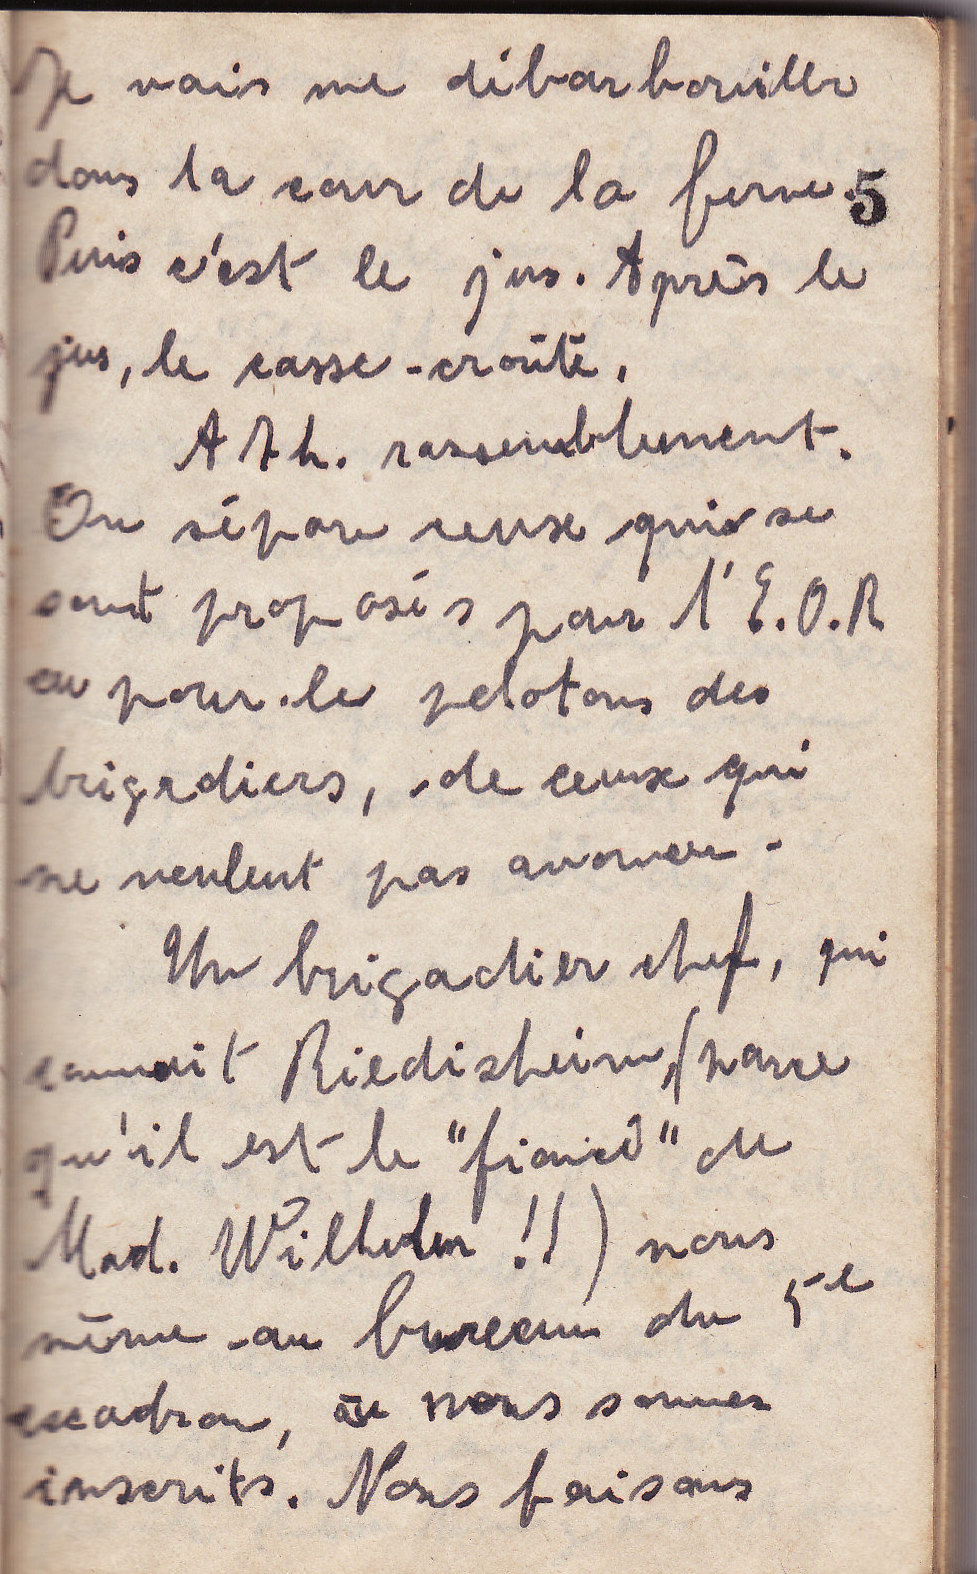 Je vais me débarbouiller
dans la cour de la ferme.
5
Puis c'est le jus. Après le
jus, le casse-croûte.
A 7h. rassemblement.
On sépare ceux qui se
sont proposés pour l'E.O.R
ou pour le pelotons des
brigadiers, de ceux qui
ne veulent pas avancer.
Un brigadier chef, qui
connait Riedisheim, (parce
qu'il est le "fiancé" de
Mad. Wilhelm !!) nous
mène au bureau du 5e
escadron, où nous sommes
inscrits. Nous faisons